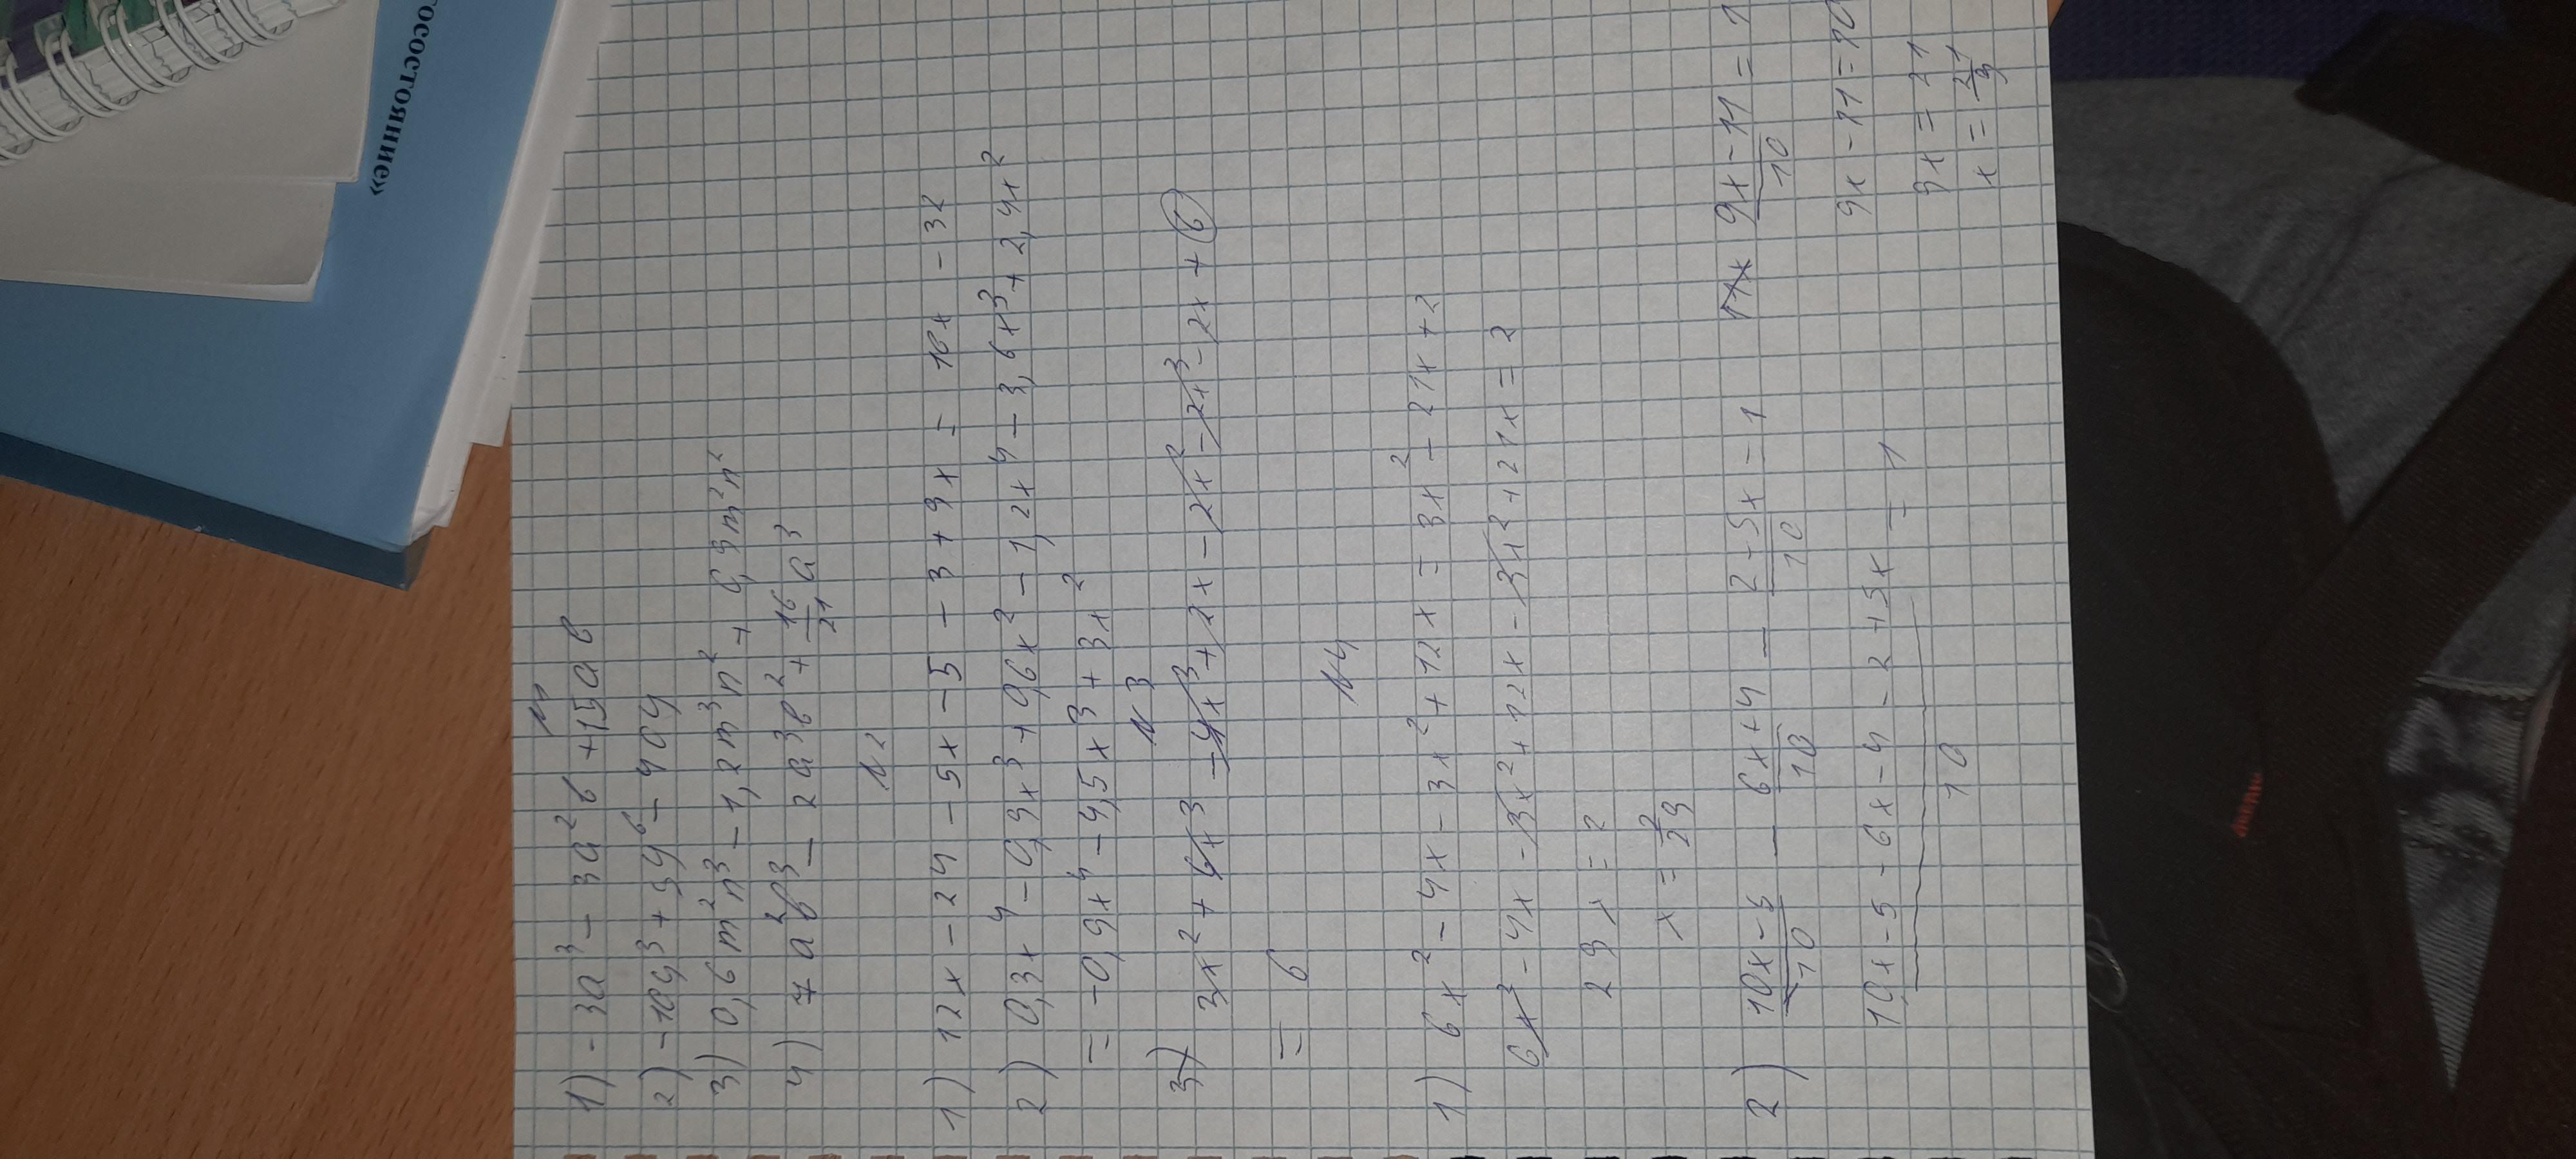 госостояние»
N1
1) -3a³ - 3a²b + 15ab
2) -10y³ + 3y⁶ - 4ay
3) 0,6m²n³ - 1,2m³n² + 0,9m²n²
4) 7a²b³ - 2a³b² + 16/21 a³
N2
1) 12x - 24 - 5x - 5 - 3 + 9x = 16x - 32
2) 0,3x⁴ - 0,9x³ + 0,6x² - 1,2x⁴ - 3,6x³ + 2,4x²
= -0,9x⁴ - 4,5x³ + 3x²
N3
3) 3x² + 6x³ - 4x³ + 2x - 2x² - 2x³ - 2x + 6
= 6
N4
1) 6x² - 4x - 3x² + 12x = 3x² - 21x + 2
6x² - 4x - 3x² + 12x - 3x² + 21x = 2
29x = 2
x = 2/29
2) (10x - 5)/10 - (6x + 4)/10 - (2 - 5x)/10 = 1
(10x - 5 - 6x - 4 - 2 + 5x)/10 = 1
(9x - 11)/10 = 1
9x - 11 = 10
9x = 21
x = 21/9